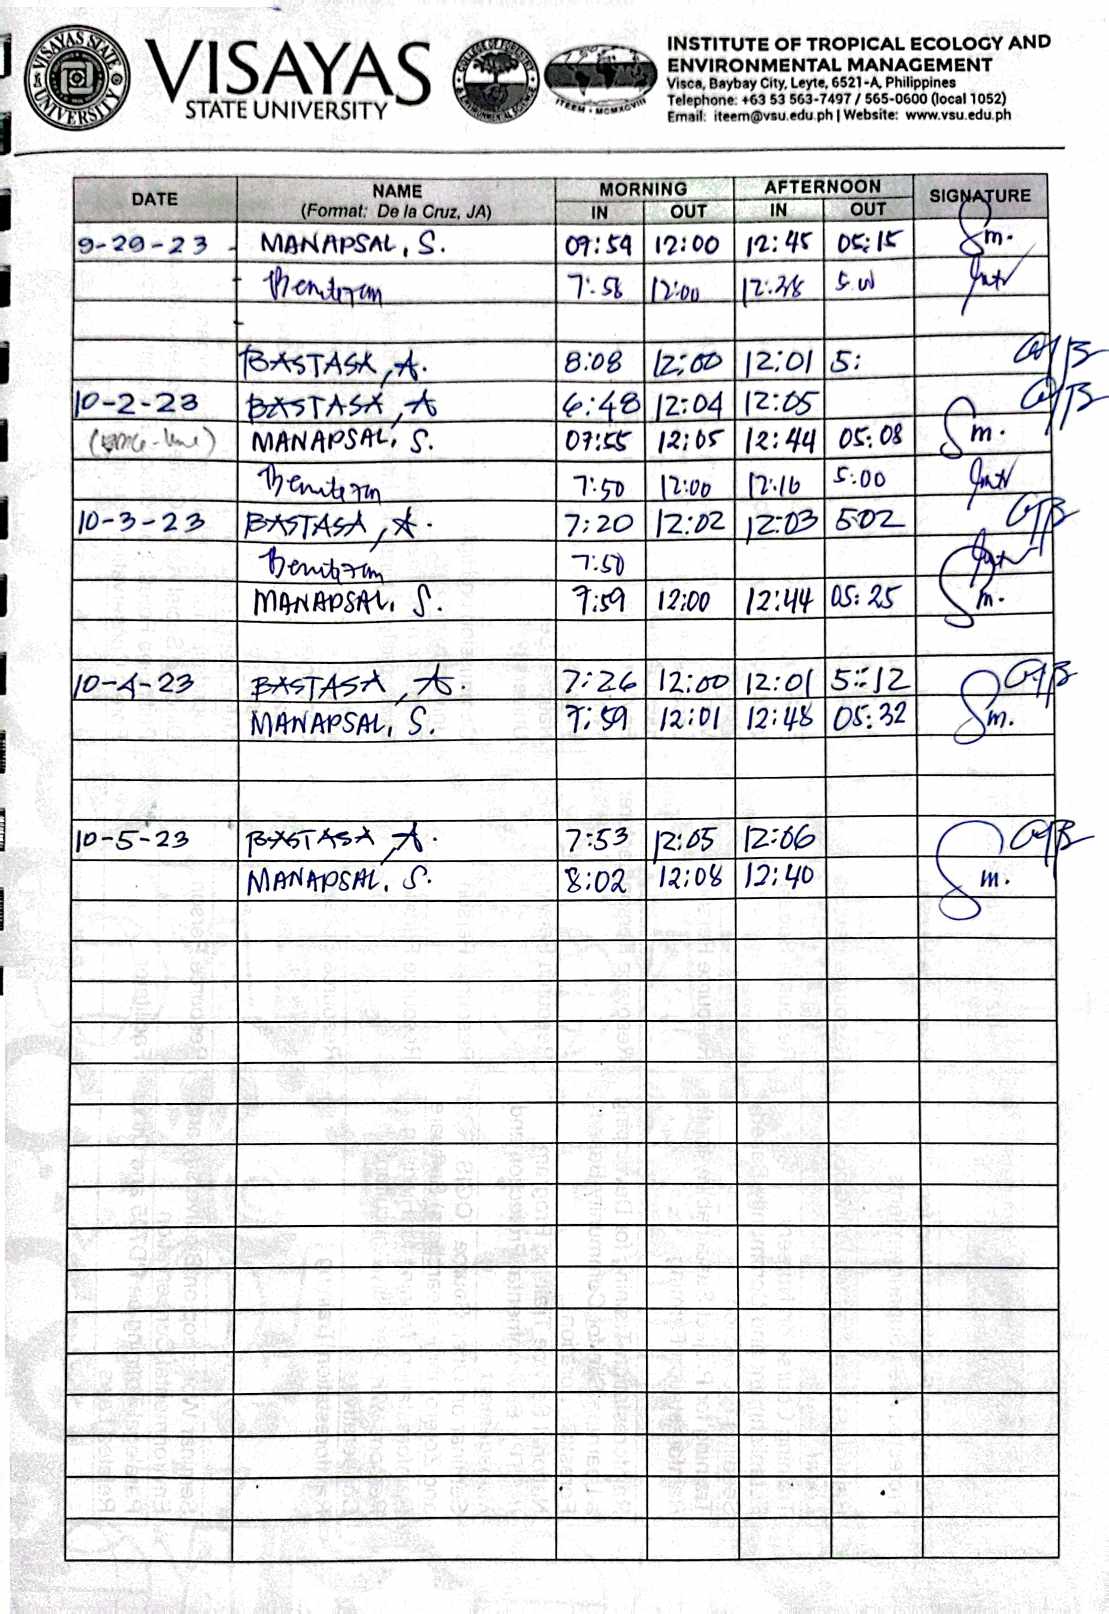 VISAYAS
STATE UNIVERSITY
INSTITUTE OF TROPICAL ECOLOGY AND
ENVIRONMENTAL MANAGEMENT
Visca, Baybay City, Leyte, 6521-A, Philippines
Telephone: +63 53 563-7497 / 565-0600 (local 1052)
Email: iteem@vsu.edu.ph | Website: www.vsu.edu.ph
VISAYAS STATE UNIVERSITY
ITEEM • MCMXCVIII
DATE NAME MORNING AFTERNOON SIGNATURE
(Format: De la Cruz, JA) IN OUT IN OUT
9-29-23 MANAPSAL, S. 07:59 12:00 12:45 05:15 Sm.
7:58 12:00 12:38 5:00
BASTASA, A. 8:08 12:00 12:01 5:
10-2-23 BASTASA, A 6:48 12:04 12:05
MANAPSAL, S. 07:55 12:05 12:44 05:08 Sm.
7:50 12:00 12:16 5:00
10-3-23 BASTASA, A. 7:20 12:02 12:03 5:02
7:50
MANAPSAL, S. 7:59 12:00 12:44 05:25 Sm.
10-4-23 BASTASA, A. 7:26 12:00 12:01 5:12
MANAPSAL, S. 7:59 12:01 12:48 05:32 Sm.
10-5-23 BASTASA, A. 7:53 12:05 12:06
MANAPSAL, S. 8:02 12:08 12:40 Sm.